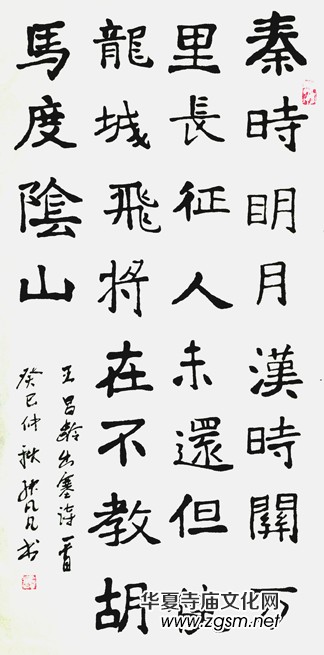 秦時明月漢時關万
里長征人未還但使
龍城飛將在不教胡
馬度陰山
王昌齡出塞诗一首
癸巳仲秋張凡凡书
华夏寺庙文化网
www.zgsm.net